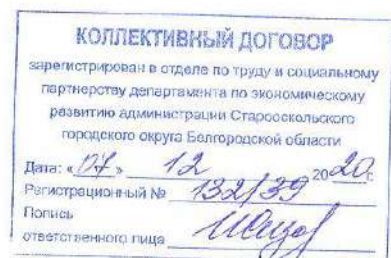 КОЛЛЕКТИВНЫЙ ДОГОВОР
зарегистрирован в отделе по труду и социальному
партнерству департамента по экономическому
развитию администрации Старооскольского
городского округа Белгородской области
Дата: «07» 12 2020г.
Регистрационный № 132/39
Попись
ответственного лица